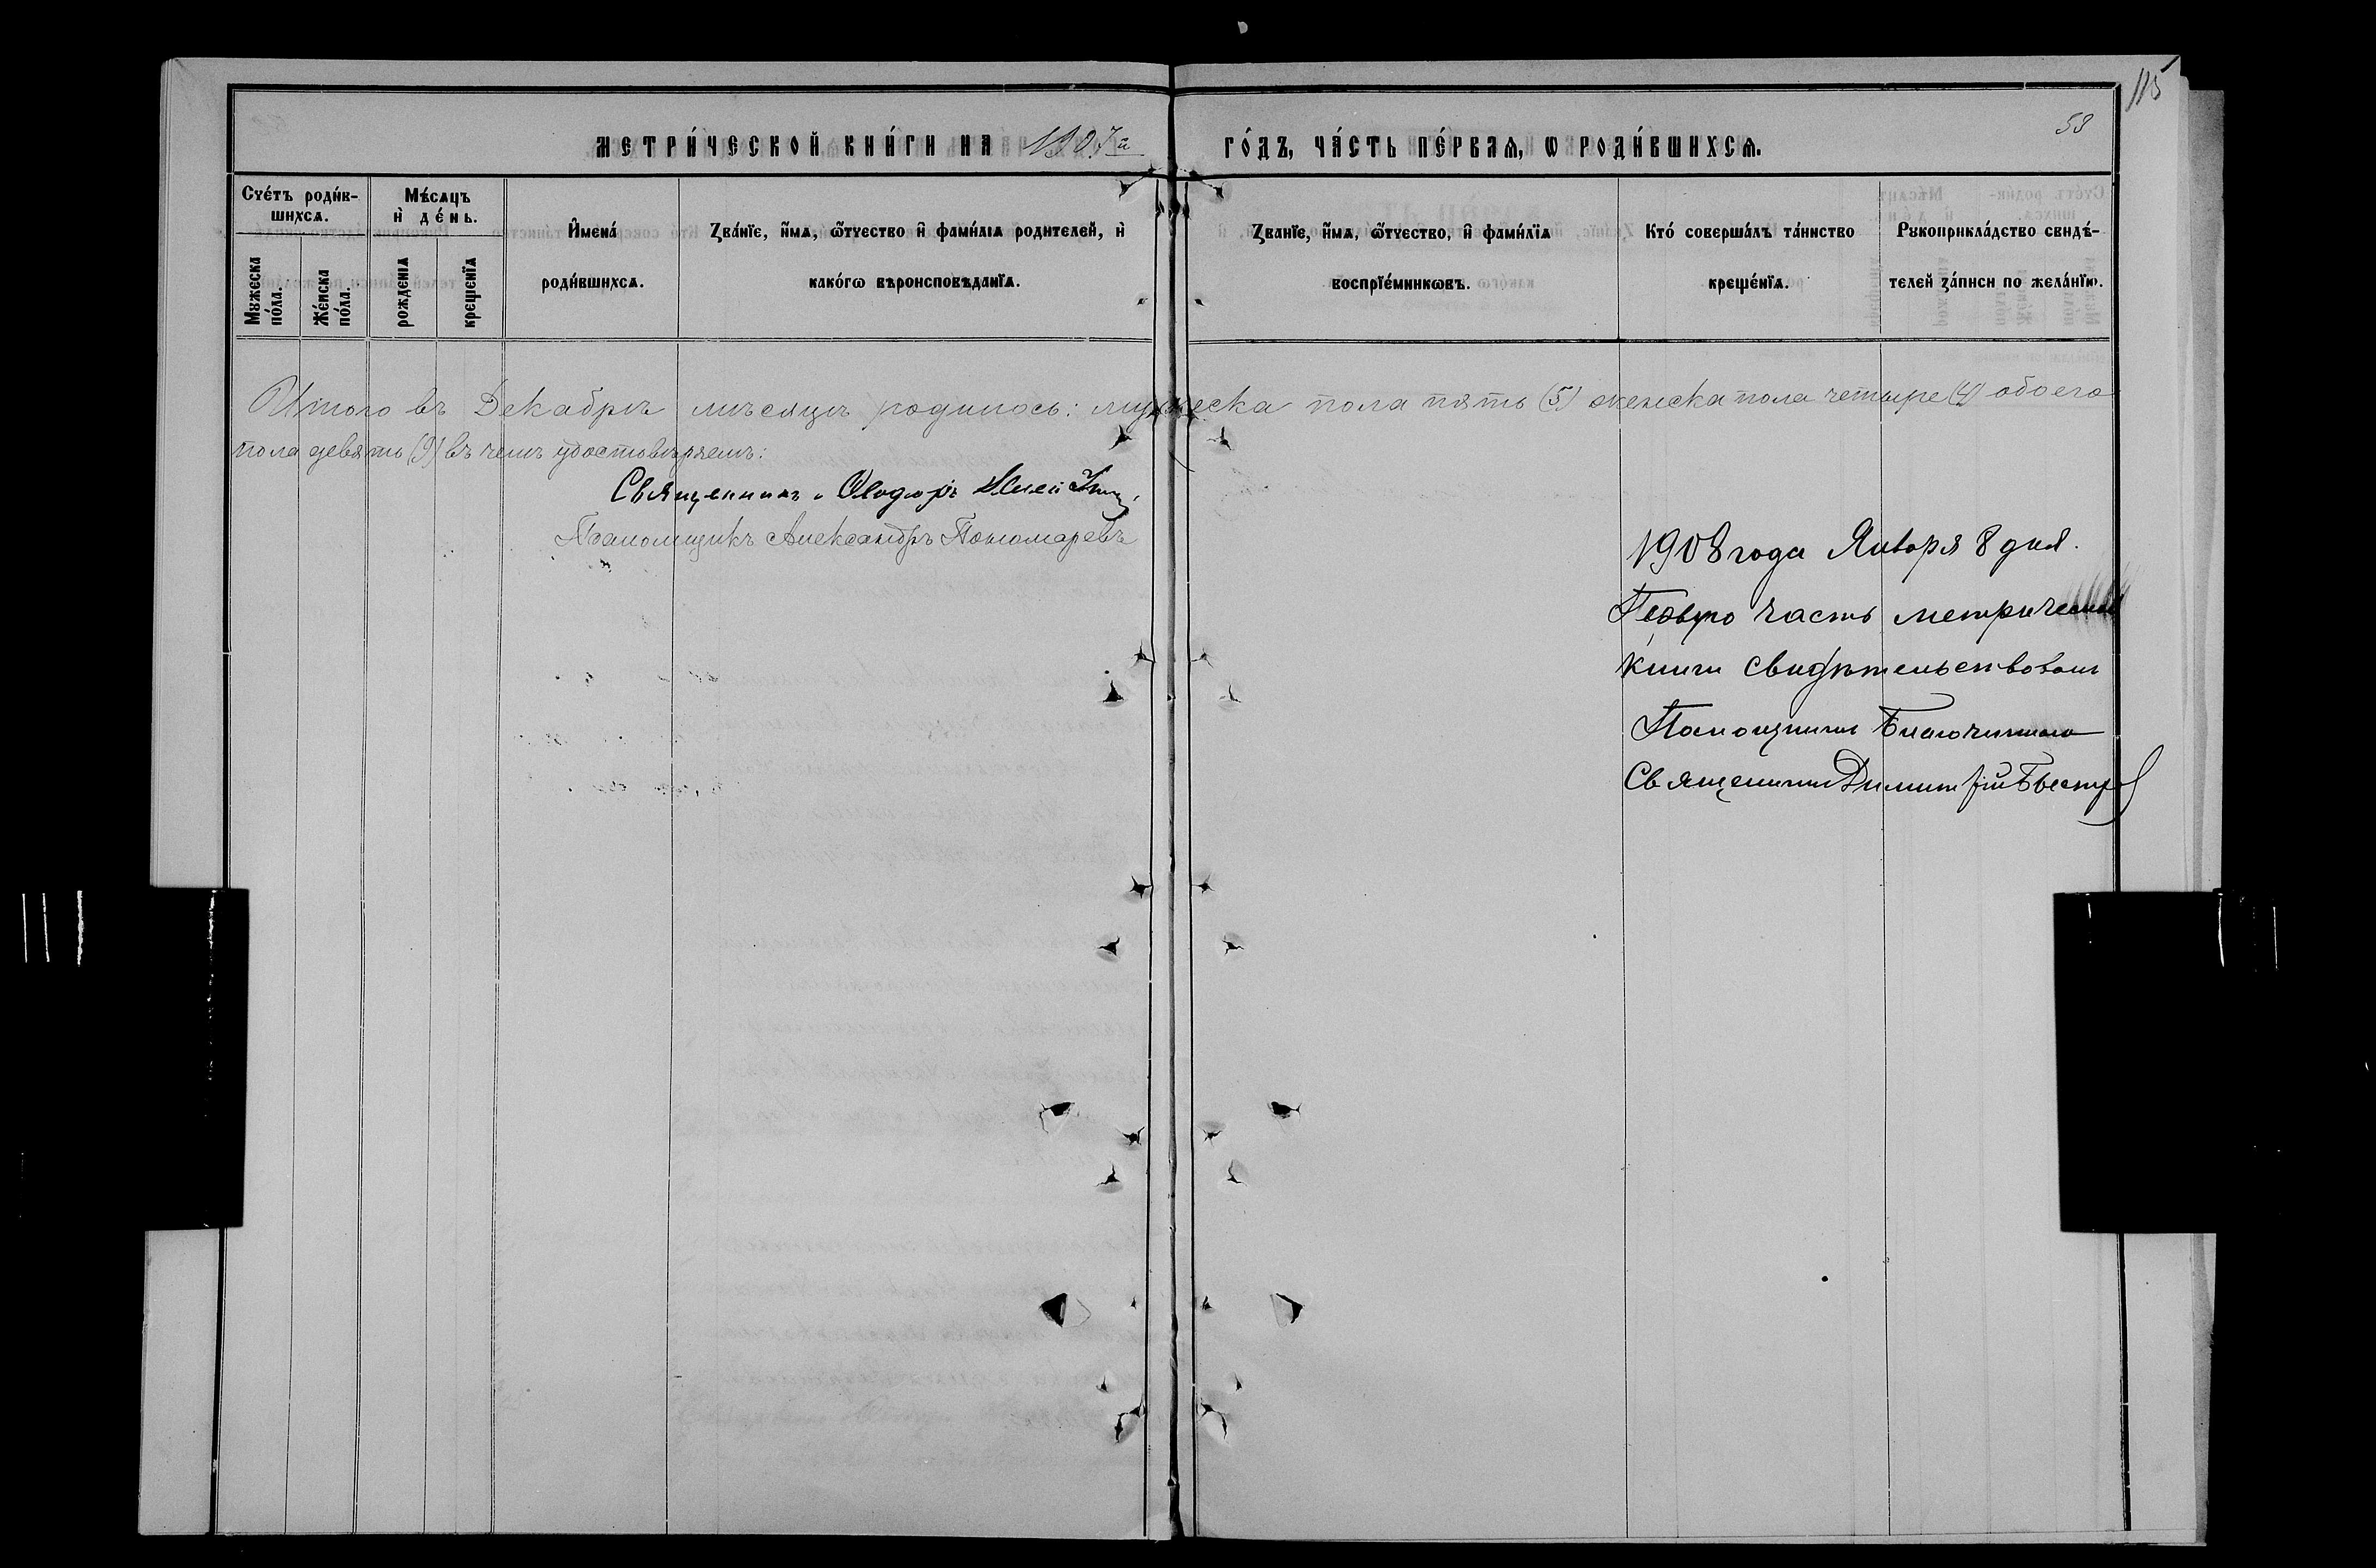 115
58
МЕТРИ́ЧЕСКОЙ КНИ́ГИ НА 1907й ГО́ДЪ, ЧА́СТЬ ПЕ́РВАѦ, Ѡ РОДИ́ВШИХСѦ.
Счéтъ роди́в-
шихсѧ.
Мꙋжеска по́ла.
Же́нска по́ла.
Мѣ́сѧцъ
и҆̀ де́нь.
рожденїѧ
крещенїѧ
И҆мена́
роди́вшихсѧ.
Ꙁва́нїе, и҆́мѧ, ѻ҆́тчество и҆ фами́лїѧ родителей, и҆̀
како́гѡ вѣроисповѣданїѧ.
Ꙁванїе, и҆́мѧ, ѻ҆́тчество, и҆ фами́лїѧ
воспрїе́мникѡвъ.
Кто́ соверша́лъ та́инство
креще́нїѧ.
Рꙋкоприкла́дство свидѣ́-
телей ꙁа́писи по жела́нїю.
Итого въ Декабрѣ мѣсяцѣ родилось: мужеска пола пять (5) женска пола четыре (4) обоего
пола девять (9) въ чемъ удостовѣряемъ:
Священникъ Ѳеодоръ
Псаломщикъ Александръ Пономаревъ
1908 года Января 8 дня.
Первую часть метрической
книги свидѣтельствовалъ
Помощникъ Благочиннаго
Священникъ Димитрій Быстр